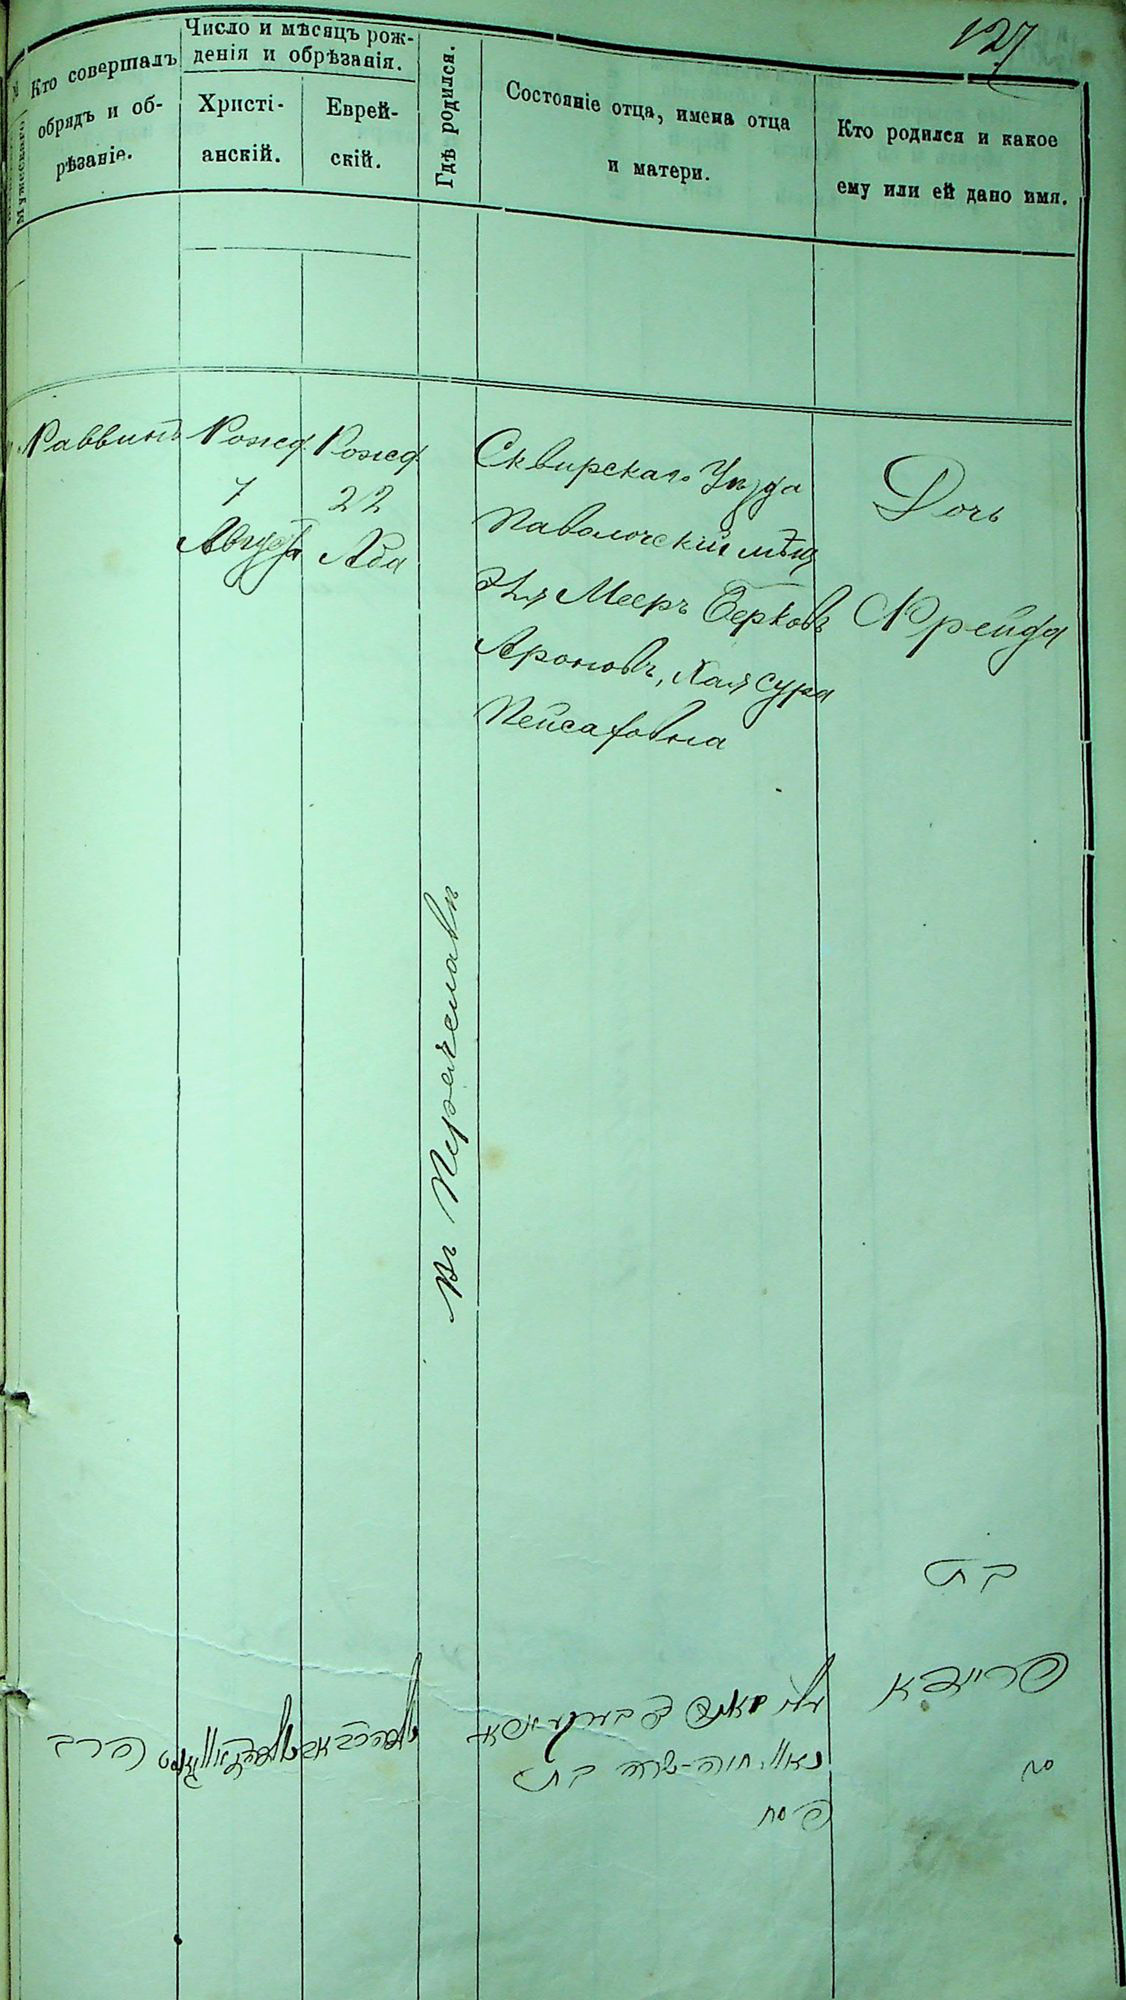 127
Мужескаго
Кто совершалъ
обрядъ и об-
рѣзаніе.
Число и мѣсяцъ рож-
денія и обрѣзанія.
Христі-
анскій.
Еврей-
скій.
Гдѣ родился.
Состояніе отца, имена отца
и матери.
Кто родился и какое
ему или ей дано имя.
Раввинъ
Рожд.
7
Августа
Рожд
22
Ава
Въ Переяславѣ
Сквирскаго Уѣзда
Паволочскій мѣщ
Мееръ Берковъ
Ароновъ, Хая Сура
Пейсаховна
Дочь
Фрейда
בת
פריידא
הרב
חיה-שרה בת
פסח